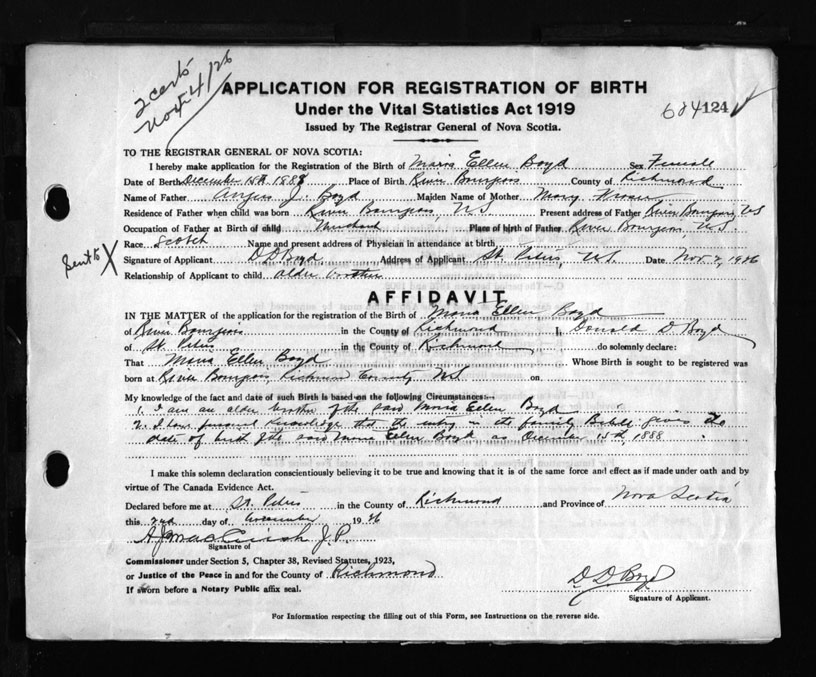 2 certs
Nov 4/26
APPLICATION FOR REGISTRATION OF BIRTH
Under the Vital Statistics Act 1919
Issued by The Registrar General of Nova Scotia.
684124
TO THE REGISTRAR GENERAL OF NOVA SCOTIA:
I hereby make application for the Registration of the Birth of Maria Ellen Boyd Sex Female
Date of Birth December 15th 1888 Place of Birth River Bourgeois County of Richmond
Name of Father Angus J. Boyd Maiden Name of Mother Mary
Residence of Father when child was born River Bourgeois, N.S. Present address of Father River Bourgeois, N.S.
Occupation of Father at Birth of child Merchant Place of birth of Father River Bourgeois, N.S.
Race Scotch Name and present address of Physician in attendance at birth,
Sent to X
Signature of Applicant D D Boyd Address of Applicant St. Peters, N.S. Date Nov 2, 1926
Relationship of Applicant to child, older brother
AFFIDAVIT
IN THE MATTER of the application for the registration of the Birth of Maria Ellen Boyd
of River Bourgeois in the County of Richmond I, Donald D. Boyd
of St. Peters in the County of Richmond do solemnly declare:
That Maria Ellen Boyd Whose Birth is sought to be registered was
born at River Bourgeois, Richmond County N.S. on
My knowledge of the fact and date of such Birth is based on the following Circumstances:
1. I am an older brother of the said Maria Ellen Boyd
2. I have personal knowledge that the entry in the family Bible gives the
date of birth of the said Maria Ellen Boyd as December 15th, 1888.
I make this solemn declaration conscientiously believing it to be true and knowing that it is of the same force and effect as if made under oath and by
virtue of The Canada Evidence Act.
Declared before me at St. Peters in the County of Richmond and Province of Nova Scotia
this 2nd day of November 1926
J.P.
Signature of
Commissioner under Section 5, Chapter 38, Revised Statutes, 1923,
or Justice of the Peace in and for the County of Richmond
If sworn before a Notary Public affix seal.
D. D. Boyd
Signature of Applicant.
For Information respecting the filling out of this Form, see Instructions on the reverse side.